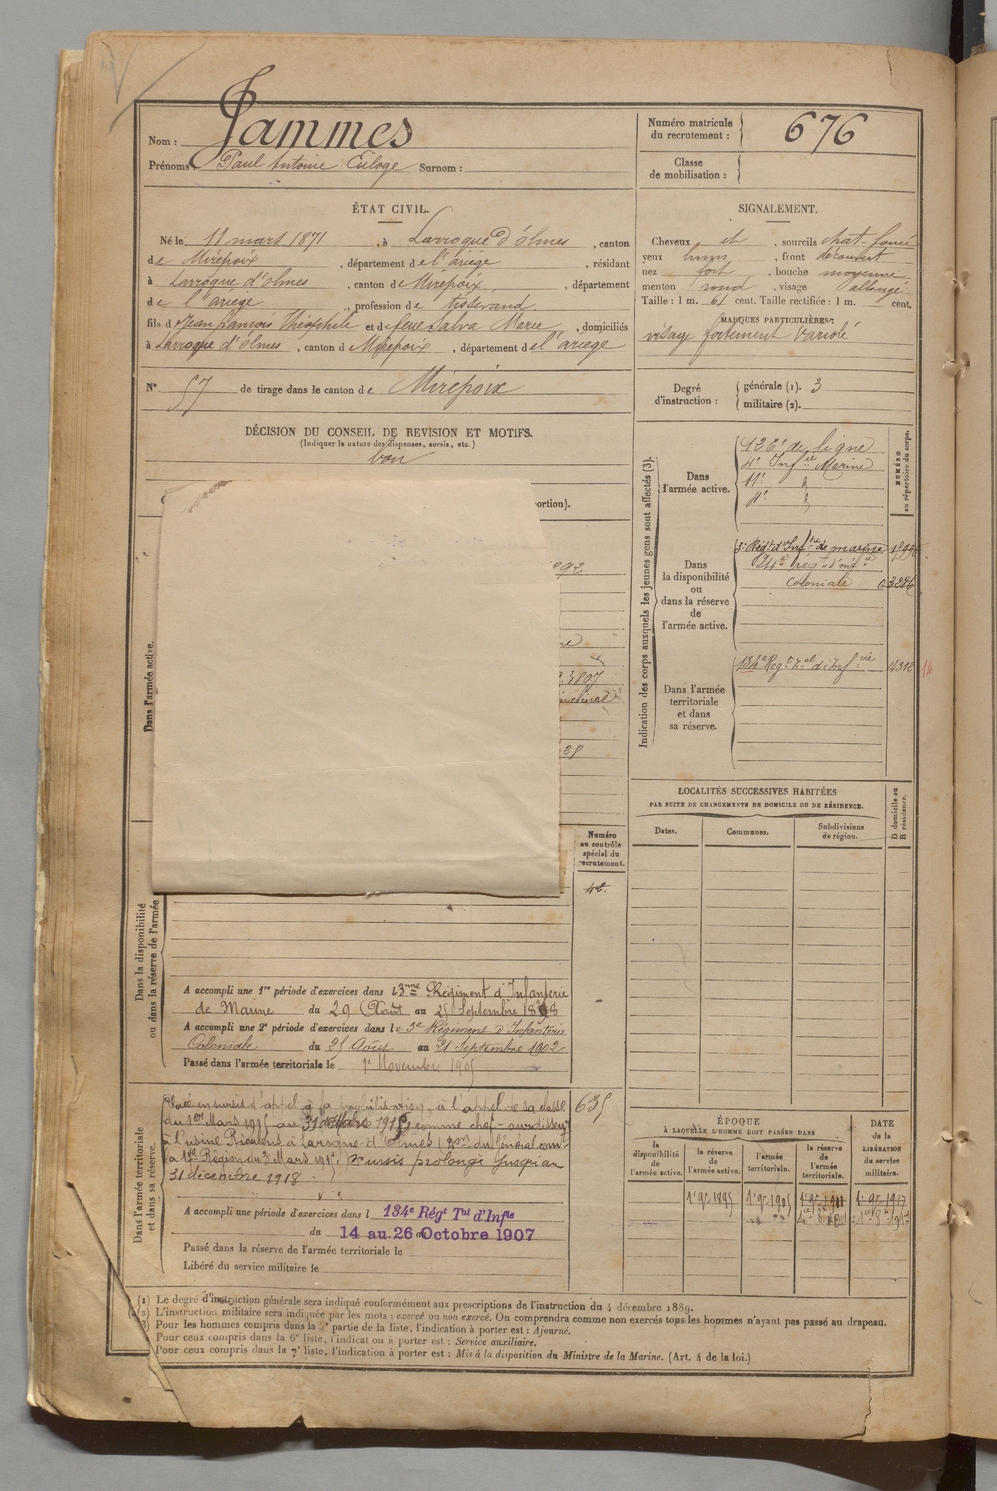 Nom : Jammes
Prénoms : Paul Antoine Euloge Surnom :
Numéro matricule du recrutement : 676
Classe de mobilisation :
ÉTAT CIVIL.
Né le 11 mars 1871, à Larroque d'Olmes, canton
de Mirepoix, département de l'ariege, résidant
à Larroque d'olmes, canton de Mirepoix, département
de l'ariège, profession de tisserand
fils d Jean francois Théophile et de feue Salva Marie, domiciliés
à Larroque d'Olmes, canton de Mirepoix, département de l'ariege
N° 57 de tirage dans le canton de Mirepoix
DÉCISION DU CONSEIL DE REVISION ET MOTIFS.
(Indiquer la nature des dispenses, sursis, etc.)
bon
SIGNALEMENT.
Cheveux et, sourcils chat-foncé
yeux, front découvert
nez fort, bouche moyenne
menton rond, visage allongé
Taille : 1 m. 61 cent. Taille rectifiée : 1 m. cent.
MARQUES PARTICULIÈRES :
visage fortement variolé
Degré d'instruction : générale (1). 3
militaire (2).
Indication des corps auxquels les jeunes gens sont affectés (3).
NUMÉRO au répertoire du corps.
Dans l'armée active.
126e de ligne
4e Infie Marine
11e
Dans la disponibilité ou dans la réserve de l'armée active.
3e Régt d'Infrie de marine
24e régt d'inf.ie
Coloniale
Dans l'armée territoriale et dans sa réserve.
134e Regt Tal d'Infrie 14312
ortion).
Dans l'armée active.
LOCALITÉS SUCCESSIVES HABITÉES
PAR SUITE DE CHANGEMENTS DE DOMICILE OU DE RÉSIDENCE.
Dates. Communes. Subdivisions de région. D domicile ou R résidence.
Numéro au contrôle spécial du recrutement.
Dans la disponibilité ou dans la réserve de l'armée
A accompli une 1re période d'exercices dans le 3me Régiment d'Infanterie
de Marine du 29 Août au 25 Septembre 1898
A accompli une 2e période d'exercices dans le 3e Régiment d'Infanterie
Coloniale du 25 Août au 21 Septembre 1902
Passé dans l'armée territoriale le 1er Novembre 1905
Dans l'armée territoriale et dans sa réserve.
Placé en sursis d'appel à la mobilisation, à l'appel de sa classe
du 1er Mars 1915 au 31 Mars 1918, comme chef-ourdisseur
à l'usine Ricalens à Laroque d'Olmes
31 décembre 1918
sursis prolongé jusqu'au
635
A accompli une période d'exercices dans l 134e Régt Tal d'Infie
du 14 au 26 Octobre 1907
Passé dans la réserve de l'armée territoriale le
Libéré du service militaire le
ÉPOQUE
À LAQUELLE L'HOMME DOIT PASSER DANS
la disponibilité de l'armée active.
la réserve de l'armée active.
l'armée territoriale.
la réserve de l'armée territoriale.
DATE de la LIBÉRATION du service militaire.
1er 9bre 1895 1er 9bre 1905 1er 9bre 1911
(1) Le degré d'instruction générale sera indiqué conformément aux prescriptions de l'instruction du 4 décembre 1889.
(2) L'instruction militaire sera indiquée par les mots : exercé ou non exercé. On comprendra comme non exercés tous les hommes n'ayant pas passé au drapeau.
(3) Pour les hommes compris dans la 5e partie de la liste, l'indication à porter est : Ajourné.
Pour ceux compris dans la 6e liste, l'indication à porter est : Service auxiliaire.
Pour ceux compris dans la 7e liste, l'indication à porter est : Mis à la disposition du Ministre de la Marine. (Art. 4 de la loi.)